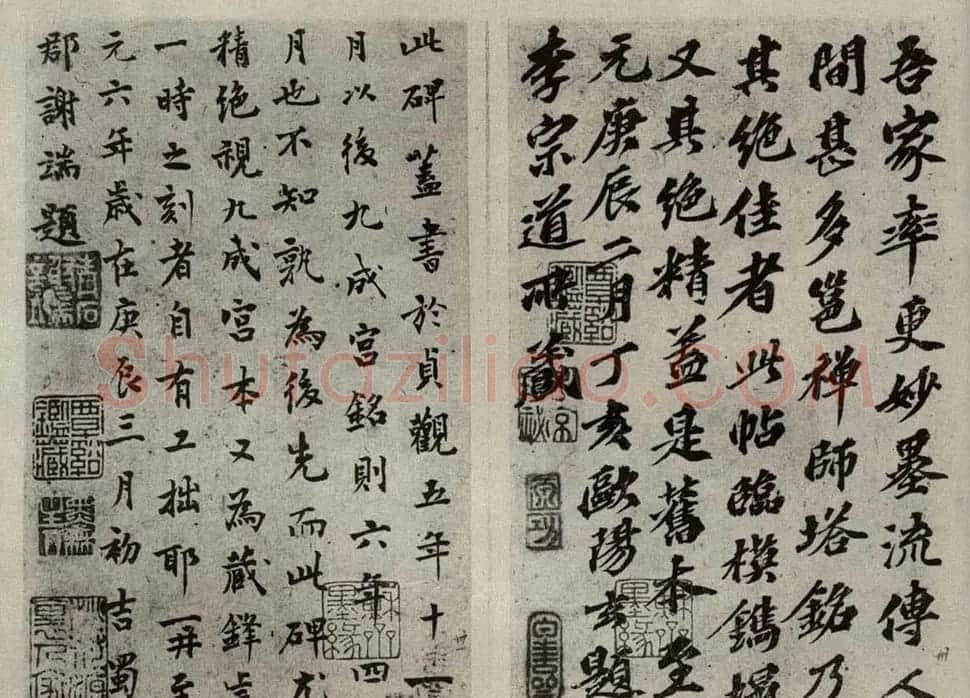 吾家率更妙墨流傳人
間甚多邕禪師塔銘乃
其絶佳者此帖臨模鐫
又其絶精益是舊本至
元庚辰二月丁亥歐陽玄題
李宗道所藏
此碑蓋書於貞觀五年十一
月以後九成宮銘則六年四
月也不知孰為後先而此碑尤
精絶視九成宮本又為藏鋒豈
一時之刻者自有工拙耶一并至
元六年歲在庚辰三月初吉蜀
郡謝端題
Shufaziliao.com